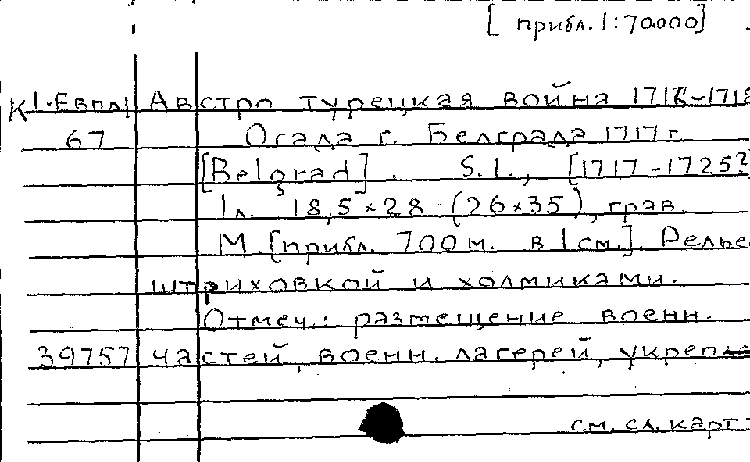 [прибл. 1:70000]
К 1-Евпл Австро турецкая война 1716-1718
67 Осада г. Белграда 1717 г.
[Belgrad]. S.l., [1717-1725?
1 л. 18,5×28 (26×35), грав.
М [прибл. 700 м. в 1 см.]. Релье
штриховкой и холмиками.
Отмеч.: размещение военн.
39757 частей, военн. лагерей, укрепл
см. сл. карт